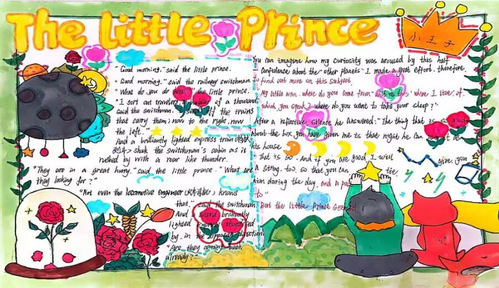 The little Prince
小王子
"Good morning," said the little prince.
"Good morning," said the railway switchman
"What do you do here?" little prince.
"I sort out travelers, of a thousand
said the switchman. the trains
that carry them; now to the right, now
the left.
And a brilliantly lighted express train
the switchman's cabin as it
rushed by with a roar like thunder.
"They are in a great hurry," said the little prince. "What are
they looking for?"
even the locomotive engineer knows
that," said the switchman
And brilliantly
lighted
by in the opposite direction
Are they coming back
already?"
You can imagine how my curiosity was aroused by this half
confidence about the "other planets." I made a great effort, therefore,
find out more on this subject.
My little man, where do you come from? is this "where I live" of
which you speak? where do you want to take your sheep?"
After a reflective silence he answered: "The thing that is
about the box you have me is that night he can
his house
That is so. And if you are good I will you
a string, too, so that you can the
him during the day, and a
to
But the little prince